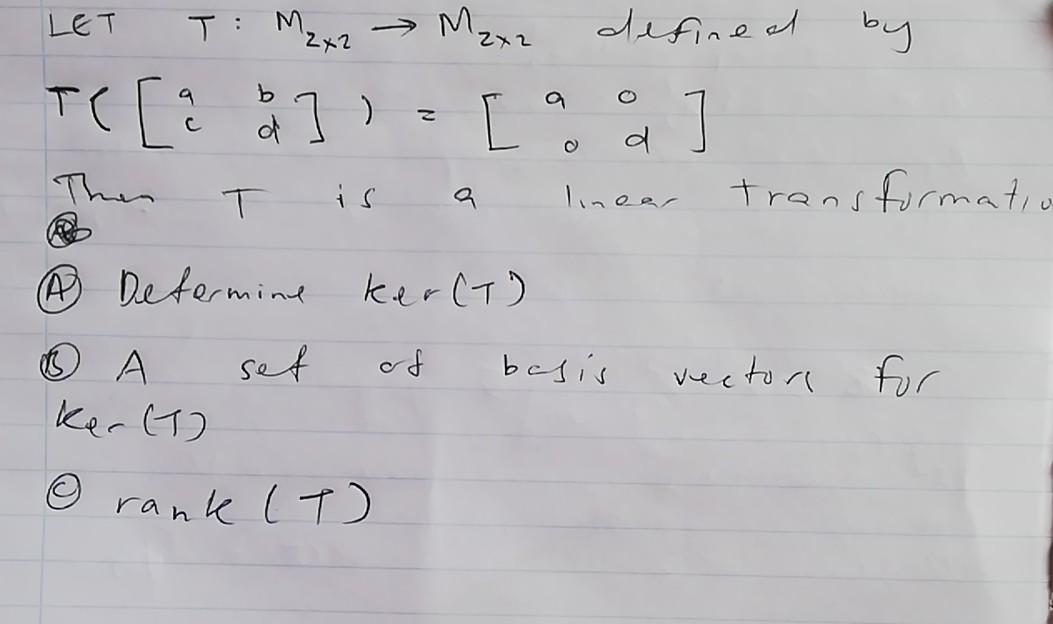 LET T: M2x2 → M2x2 defined by
T([a b
c d]) = [a 0
0 d]
Then T is a linear transformatio
A Determine ker(T)
B A set of basis vectors for
Ker(T)
C rank (T)